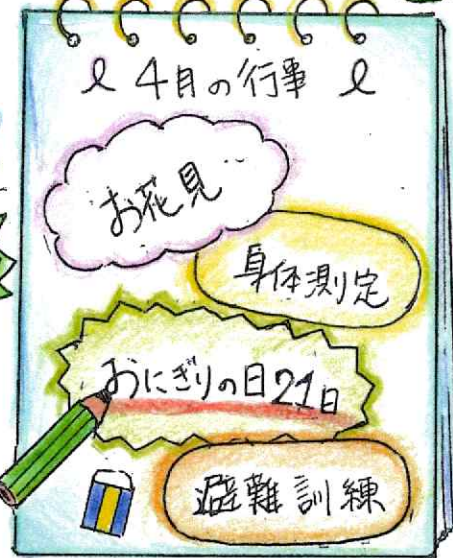 4月の行事
お花見
身体測定
おにぎりの日21日
避難訓練